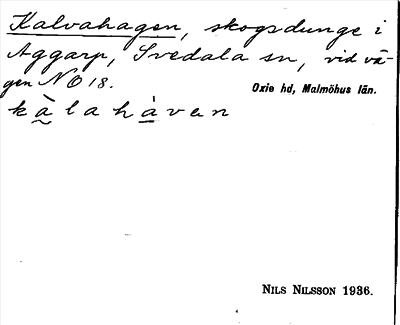 Kalvahagen, skogsdunge i
Aggarp, Svedala sn, vid vä-
gen NO 18.
Oxie hd, Malmöhus län.
kàlahàven
NILS NILSSON 1936.